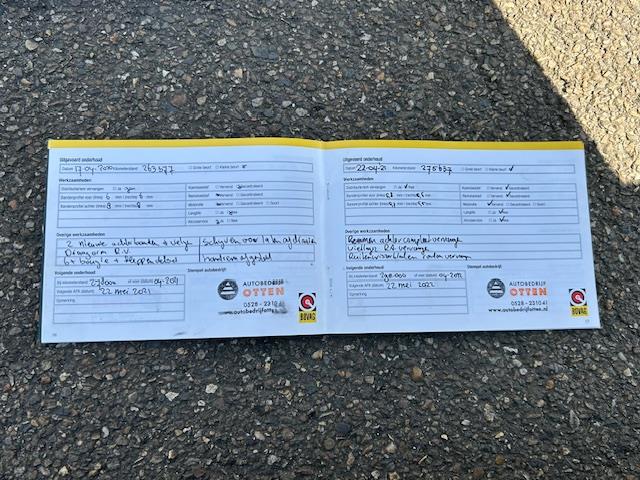 Uitgevoerd onderhoud
Datum 17-04-2020 Kilometerstand 263577 Grote beurt Kleine beurt
Werkzaamheden
Distributieriem vervangen Ja Nee
Bandenprofiel voor (links) 6 mm / (rechts) 6 mm
Bandenprofiel achter (links) 8 mm / (rechts) 8 mm
Koelvloeistof Ververst Gecontroleerd
Remvloeistof Ververst Gecontroleerd
Motorolie Ververst Gecontroleerd Soort
Longlife Ja Nee
Aircoservice Ja Nee
Overige werkzaamheden
2 nieuwe achterbanden +
Schijven voor laten afdraaien
R.V.
+ kleppendeksel
handrem afgesteld
Volgende onderhoud
Bij kilometerstand of voor (datum) 04-2021
Volgende APK (datum) 22 mei 2021
Opmerking
Stempel autobedrijf:
AUTOBEDRIJF
OTTEN
0528 - 231041
www.autobedrijfotten.nl
BOVAG
Uitgevoerd onderhoud
Datum 22-04-21 Kilometerstand 275637 Grote beurt Kleine beurt
Werkzaamheden
Distributieriem vervangen Ja Nee
Bandenprofiel voor (links) mm / (rechts) mm
Bandenprofiel achter (links) mm / (rechts) mm
Koelvloeistof Ververst Gecontroleerd
Remvloeistof Ververst Gecontroleerd
Motorolie Ververst Gecontroleerd Soort
Longlife Ja Nee
Aircoservice Ja Nee
Overige werkzaamheden
Remmen achter compleet vervangen
Wiellager RA vervangen
Ruitenwisserbladen
Volgende onderhoud
Bij kilometerstand 290.000 of voor (datum) 04-2022
Volgende APK (datum) 22 mei 2022
Opmerking
Stempel autobedrijf:
AUTOBEDRIJF
OTTEN
0528 - 231041
www.autobedrijfotten.nl
BOVAG